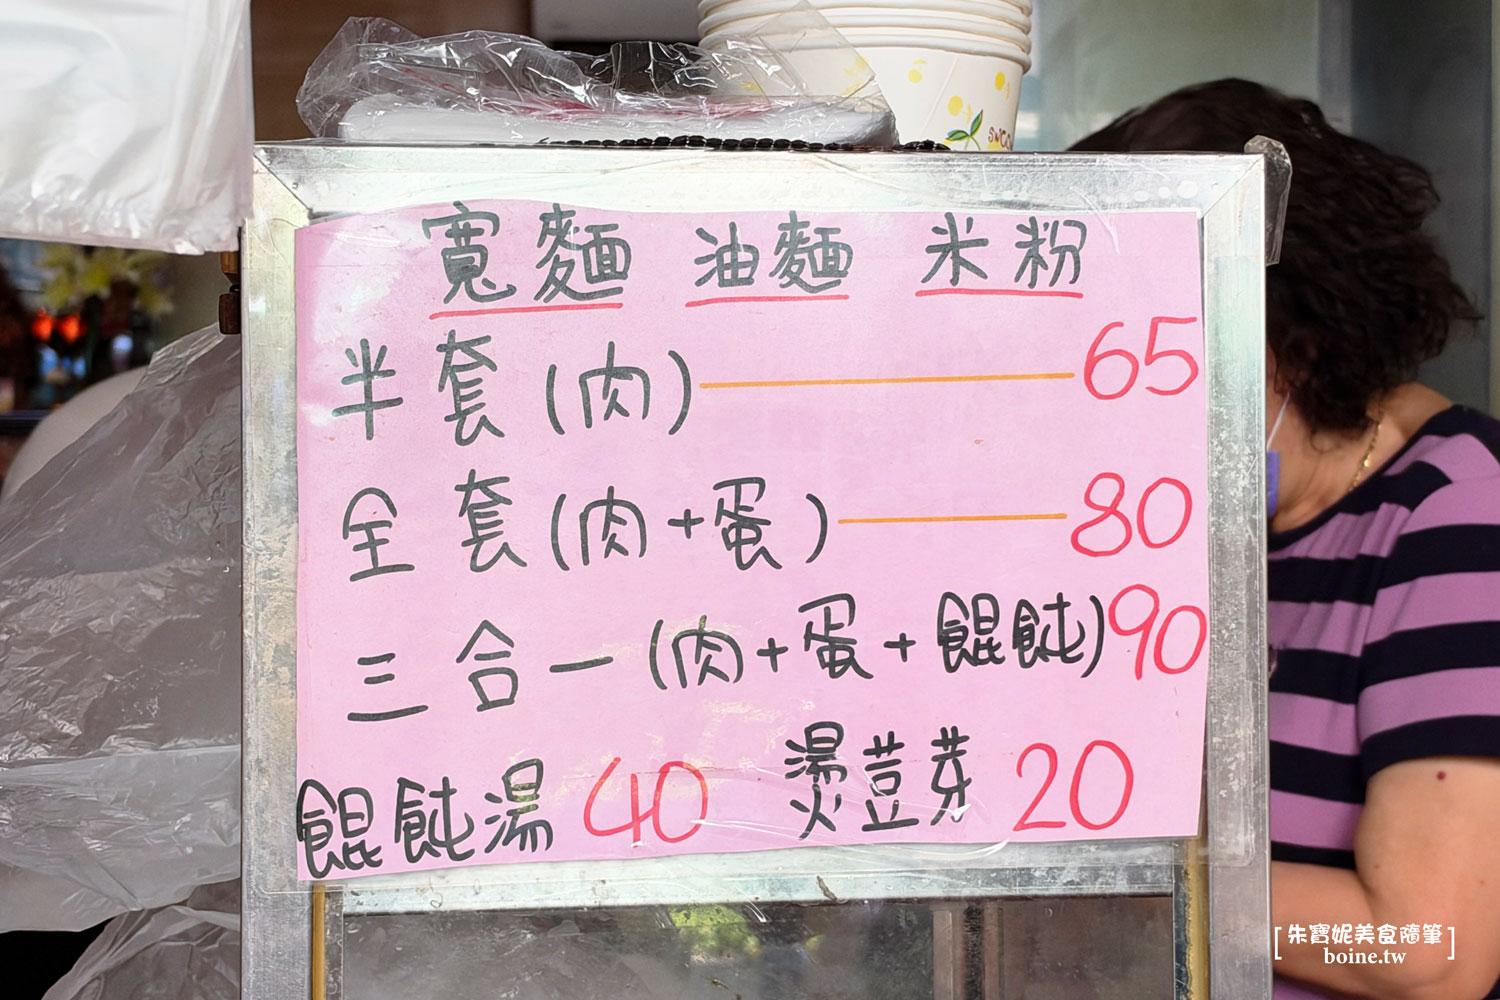 寬麵 油麵 米粉
半套(肉) 65
全套(肉+蛋) 80
三合一(肉+蛋+餛飩) 90
餛飩湯 40 燙荳芽 20
[朱寶妮美食隨筆]
boine.tw